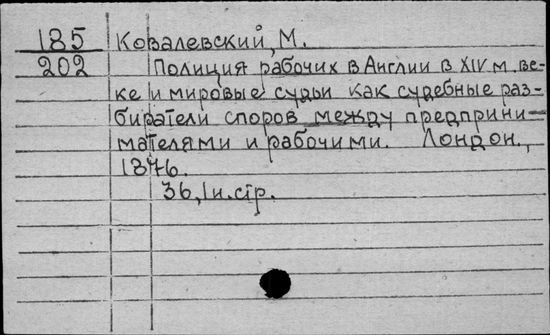 185 Ковалевский, М.
202 Полиция рабочих в Англии в XIV м. ве-
ке и мировые судьи как судебные раз-
биратели споров между предприни-
мателями и рабочими. Лондон.,
1876.
36, 1 н. стр.